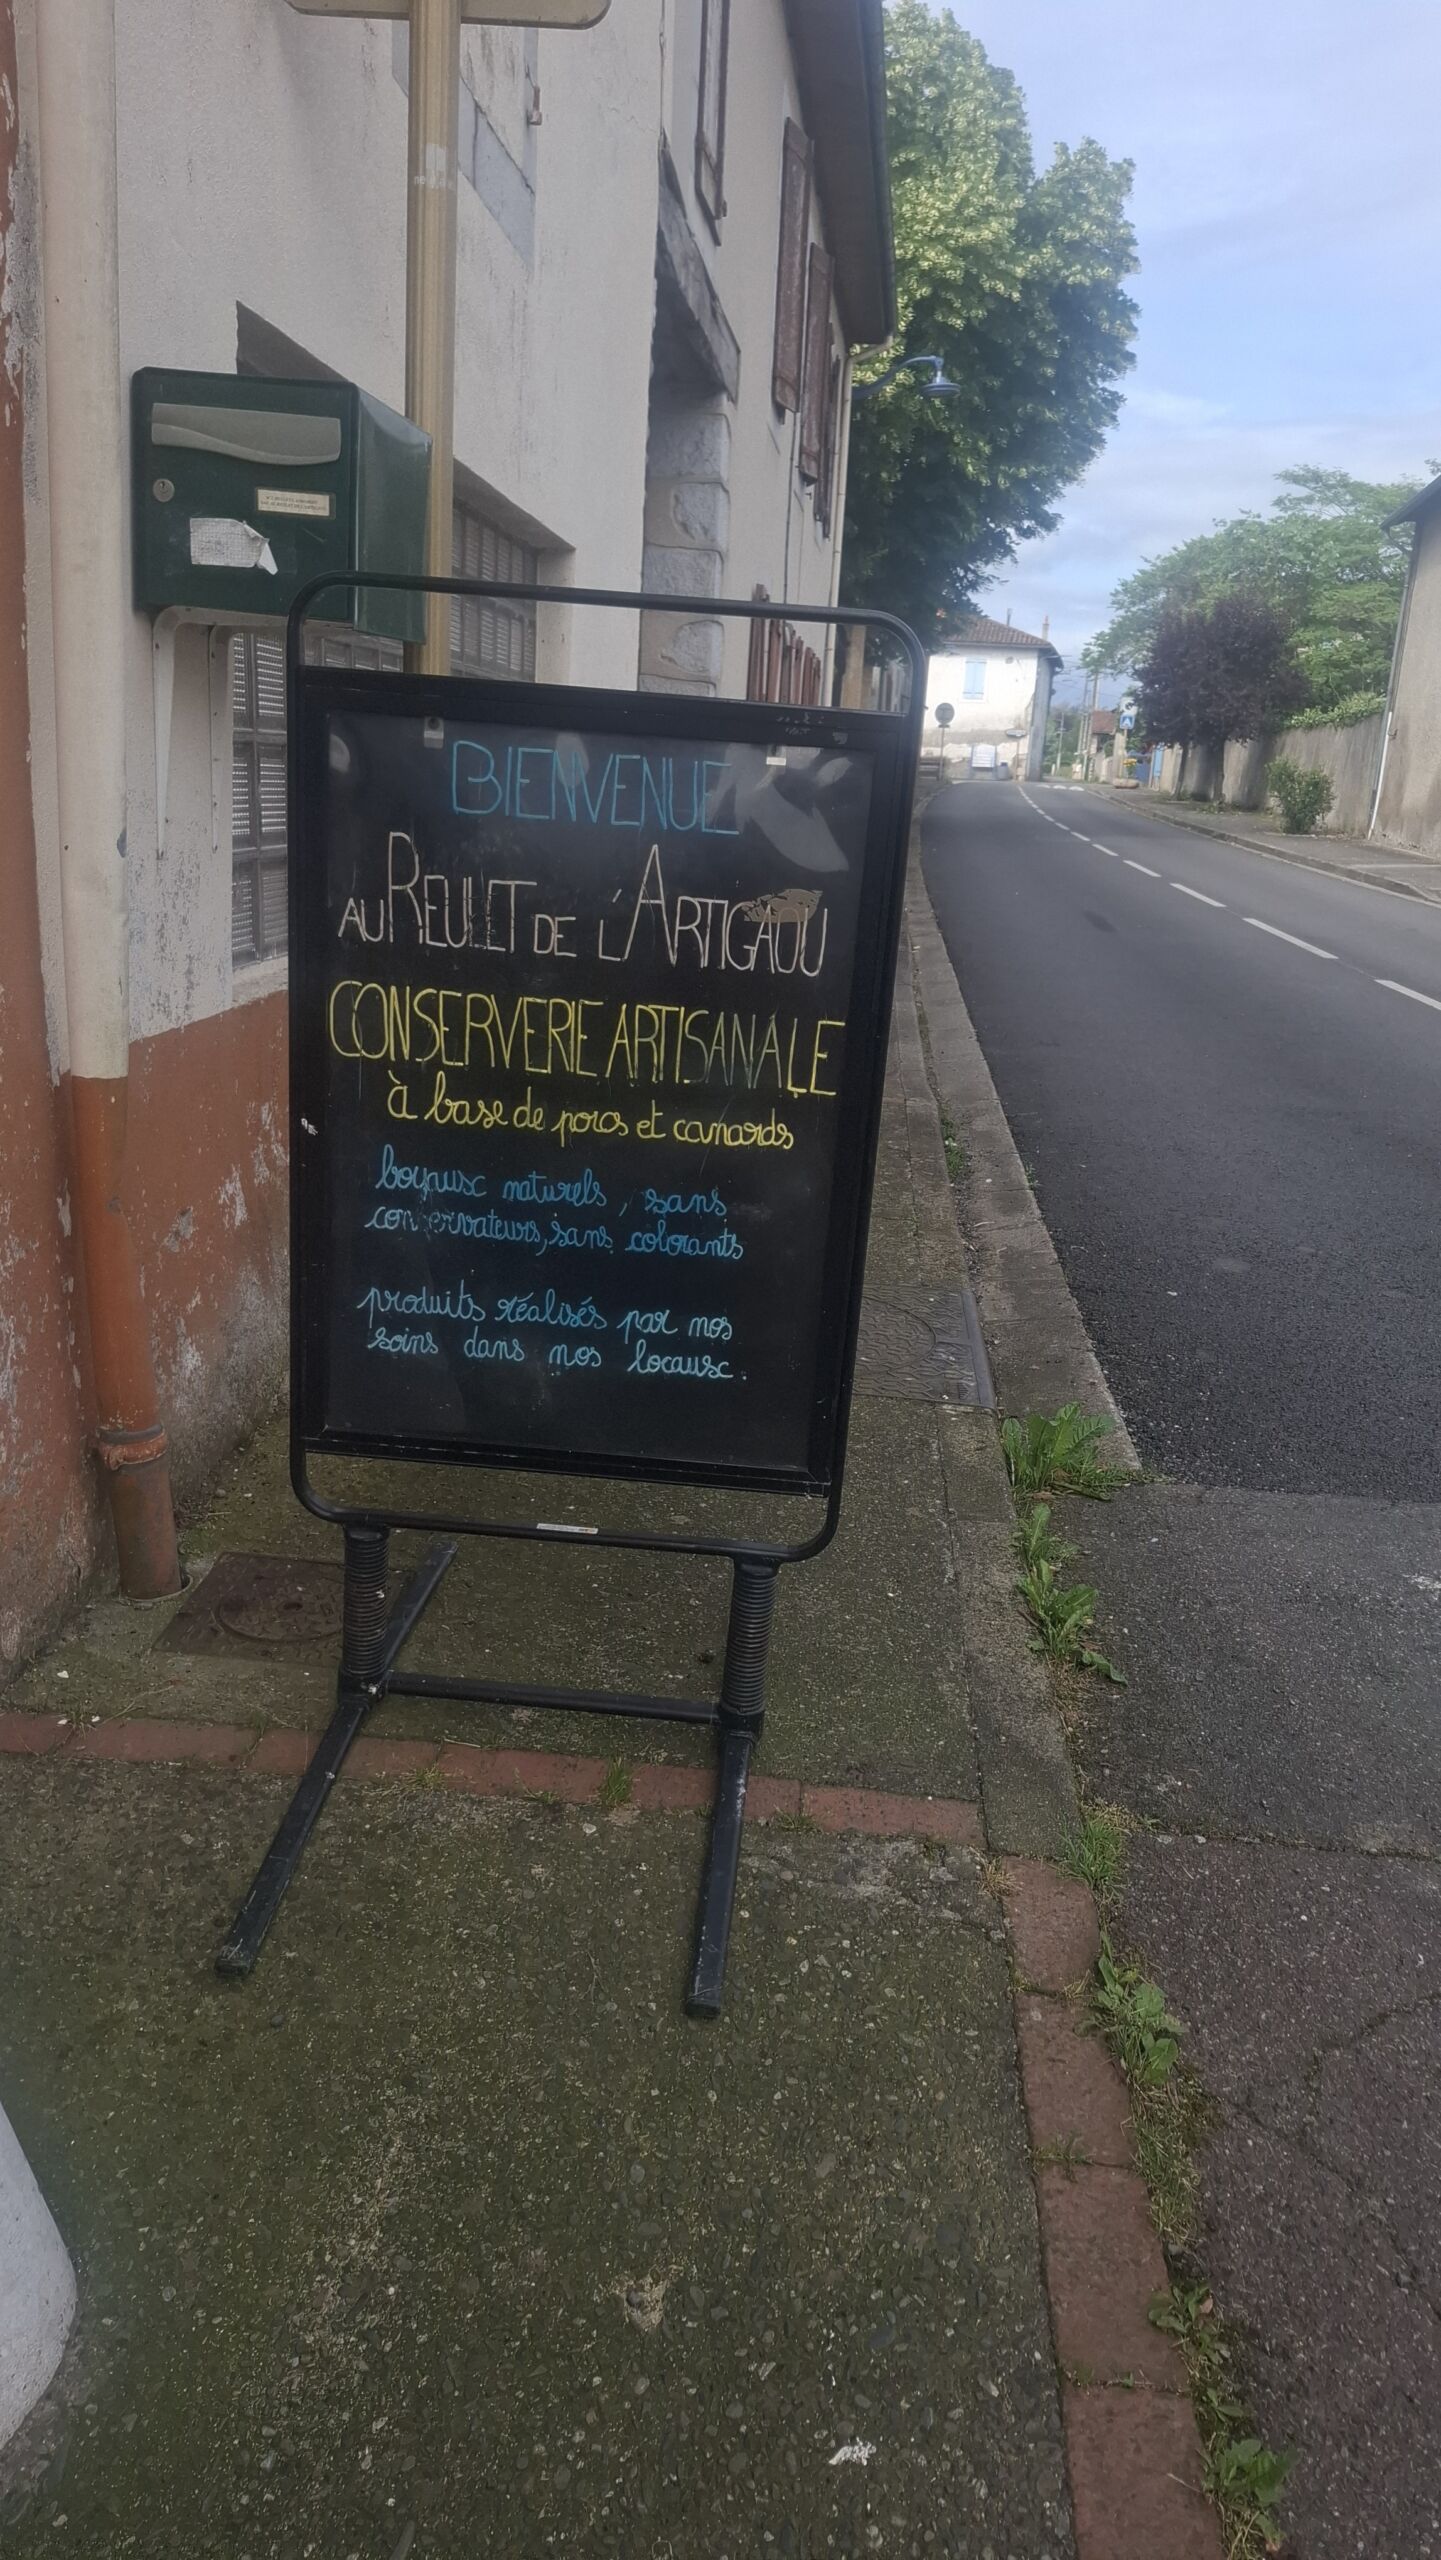 BIENVENUE
AU REULET DE L'ARTIGAOU
CONSERVERIE ARTISANALE
à base de porcs et canards
boyaux naturels, sans
conservateurs, sans colorants
produits réalisés par nos
soins dans nos locaux.